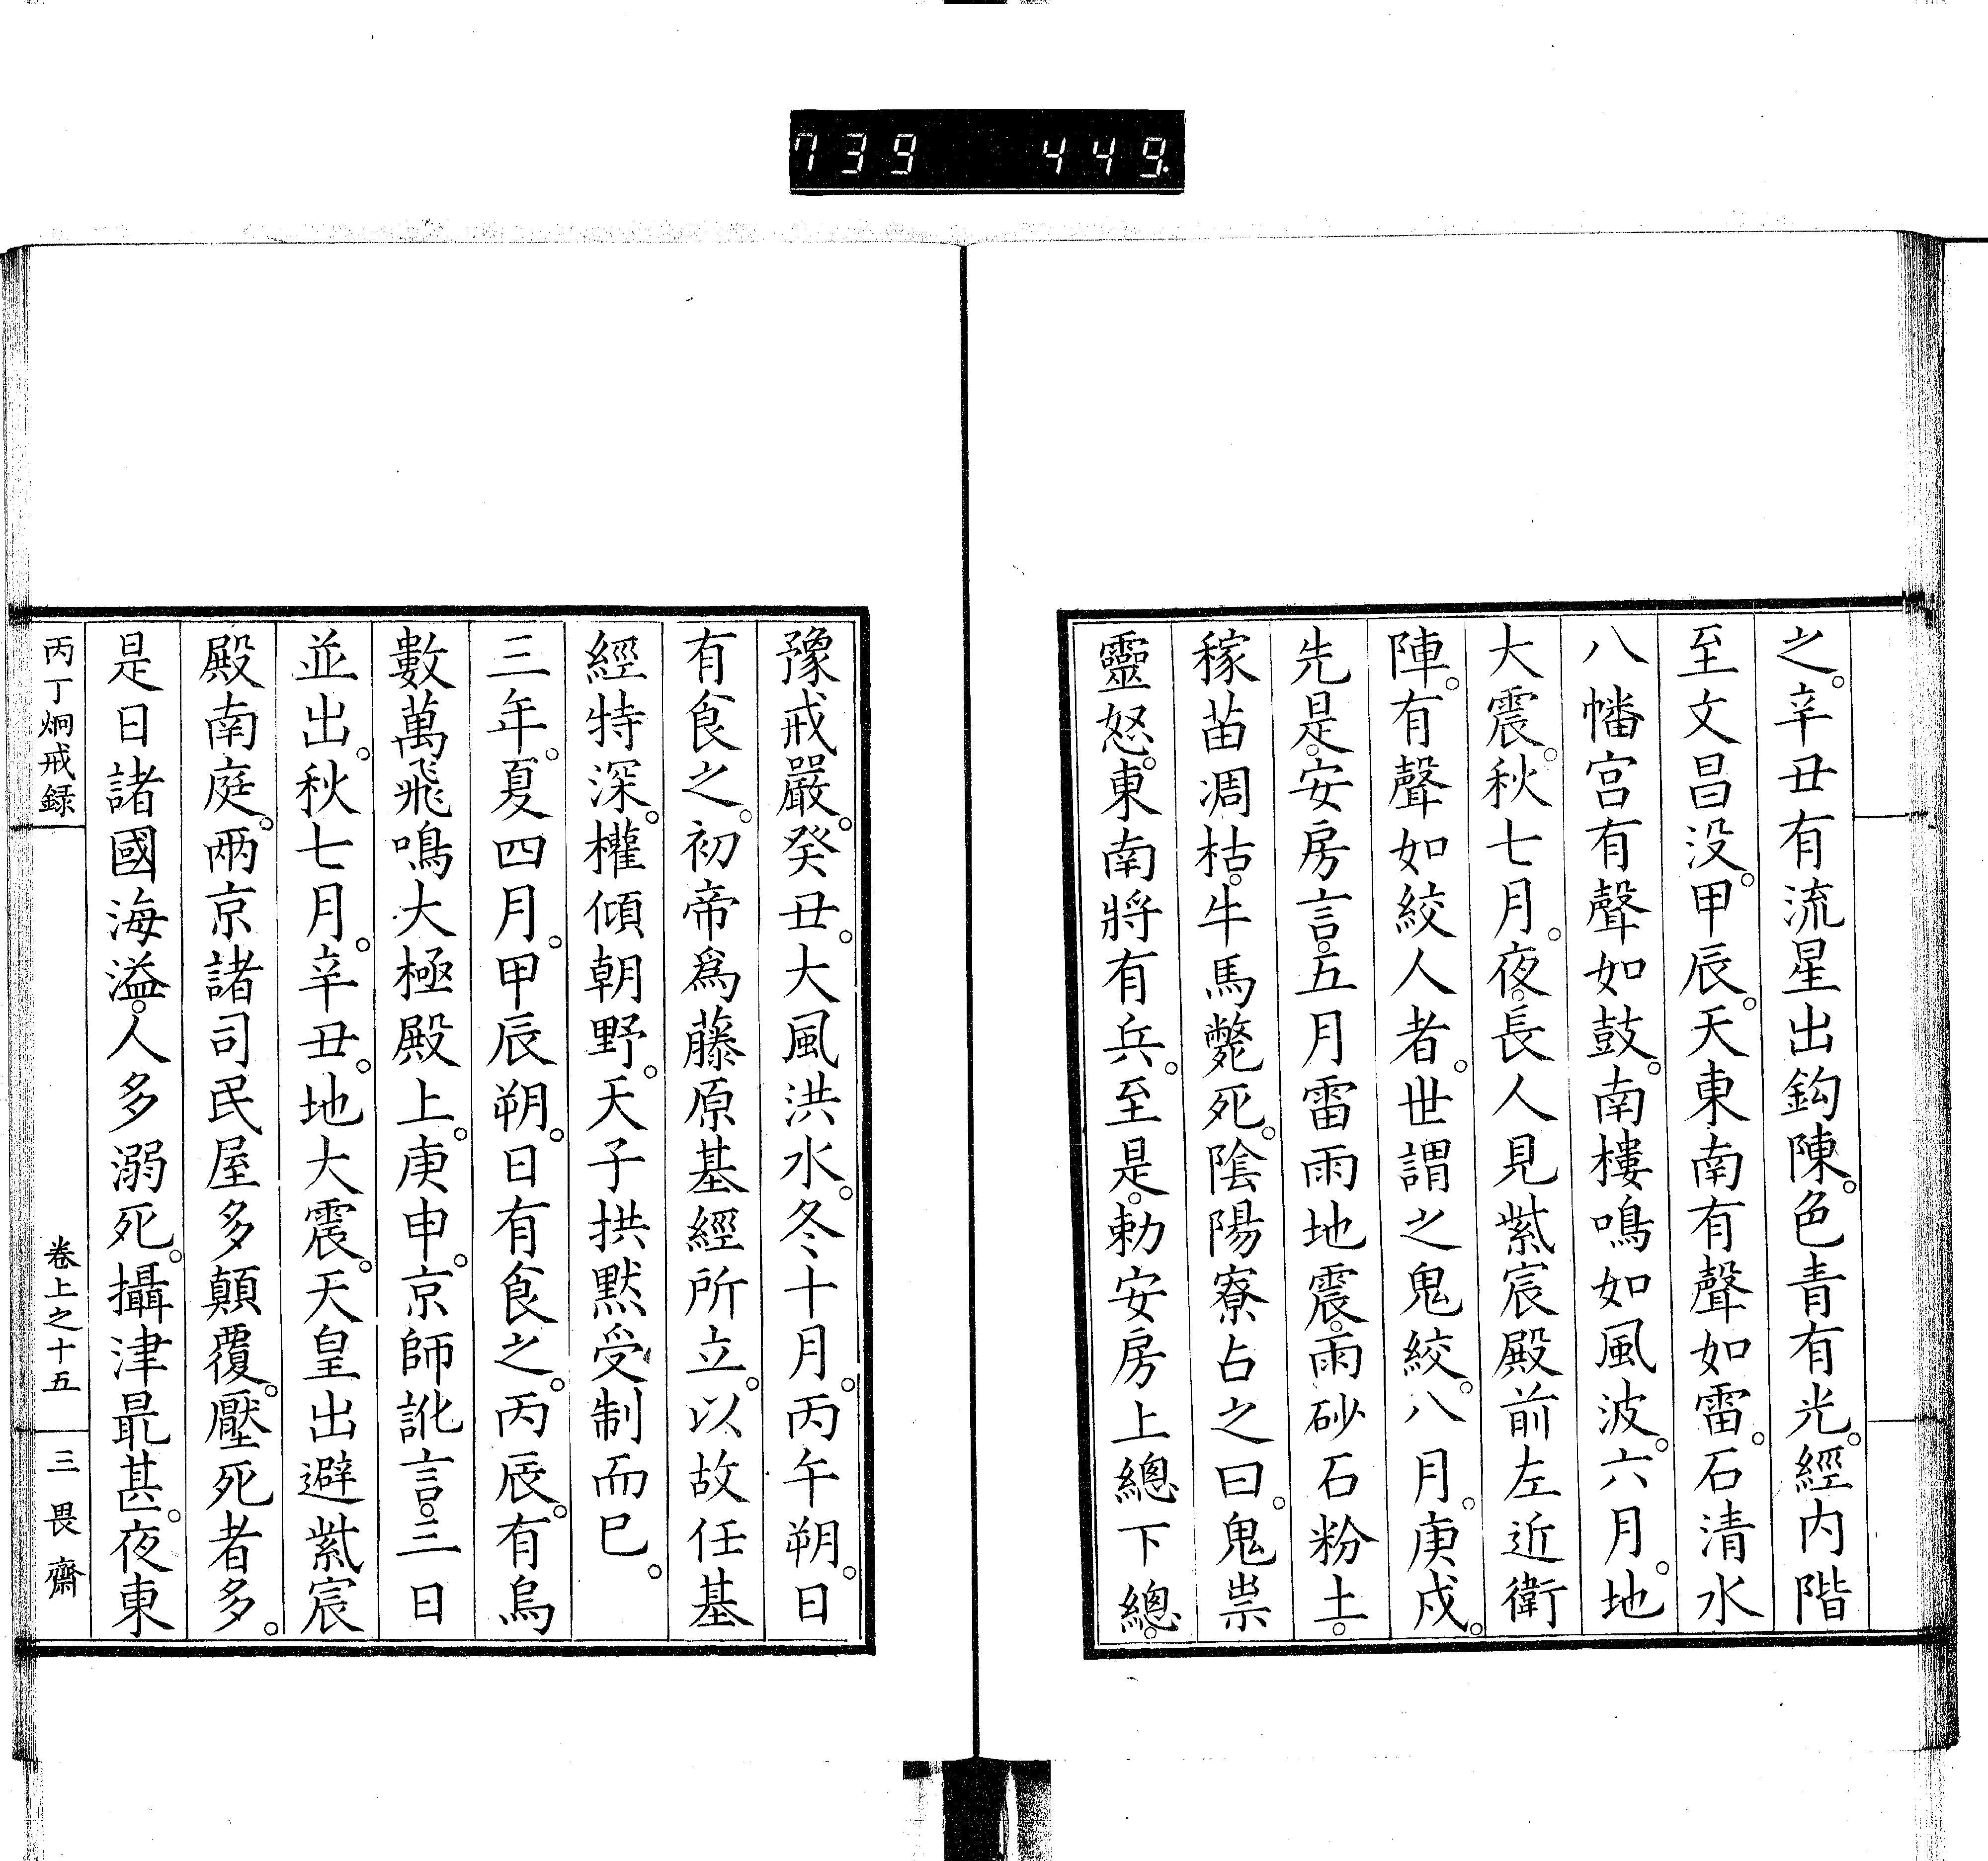 739 449.
之。辛丑有流星出鈎陳。色青有光。經内階
至文昌没。甲辰。天東南有聲如雷。石清水
八幡宮有聲如鼓。南樓鳴如風波。六月。地
大震。秋七月。夜。長人見紫宸殿前左近衛
陣。有聲如絞人者。世謂之鬼絞。八月。庚戌。
先是。安房言。五月雷雨地震。雨砂石粉土。
稼苗凋枯。牛馬斃死。陰陽寮占之曰。鬼祟
靈怒。東南將有兵。至是。勅安房上總下總。
豫戒嚴。癸丑。大風洪水。冬十月。丙午朔。日
有食之。初帝爲藤原基經所立。以故任基
經特深。權傾朝野。天子拱默受制而已。
三年。夏四月。甲辰朔。日有食之。丙辰。有烏
數萬飛鳴大極殿上。庚申。京師訛言。三日
並出。秋七月。辛丑。地大震。天皇出避紫宸
殿南庭。兩京諸司民屋多顛覆。壓死者多。
是日諸國海溢。人多溺死。攝津最甚。夜東
丙丁炯戒録 卷上之十五 三畏齋